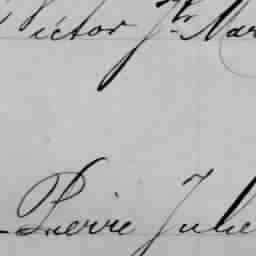 Victor Jr. Mar
Pierre Julie